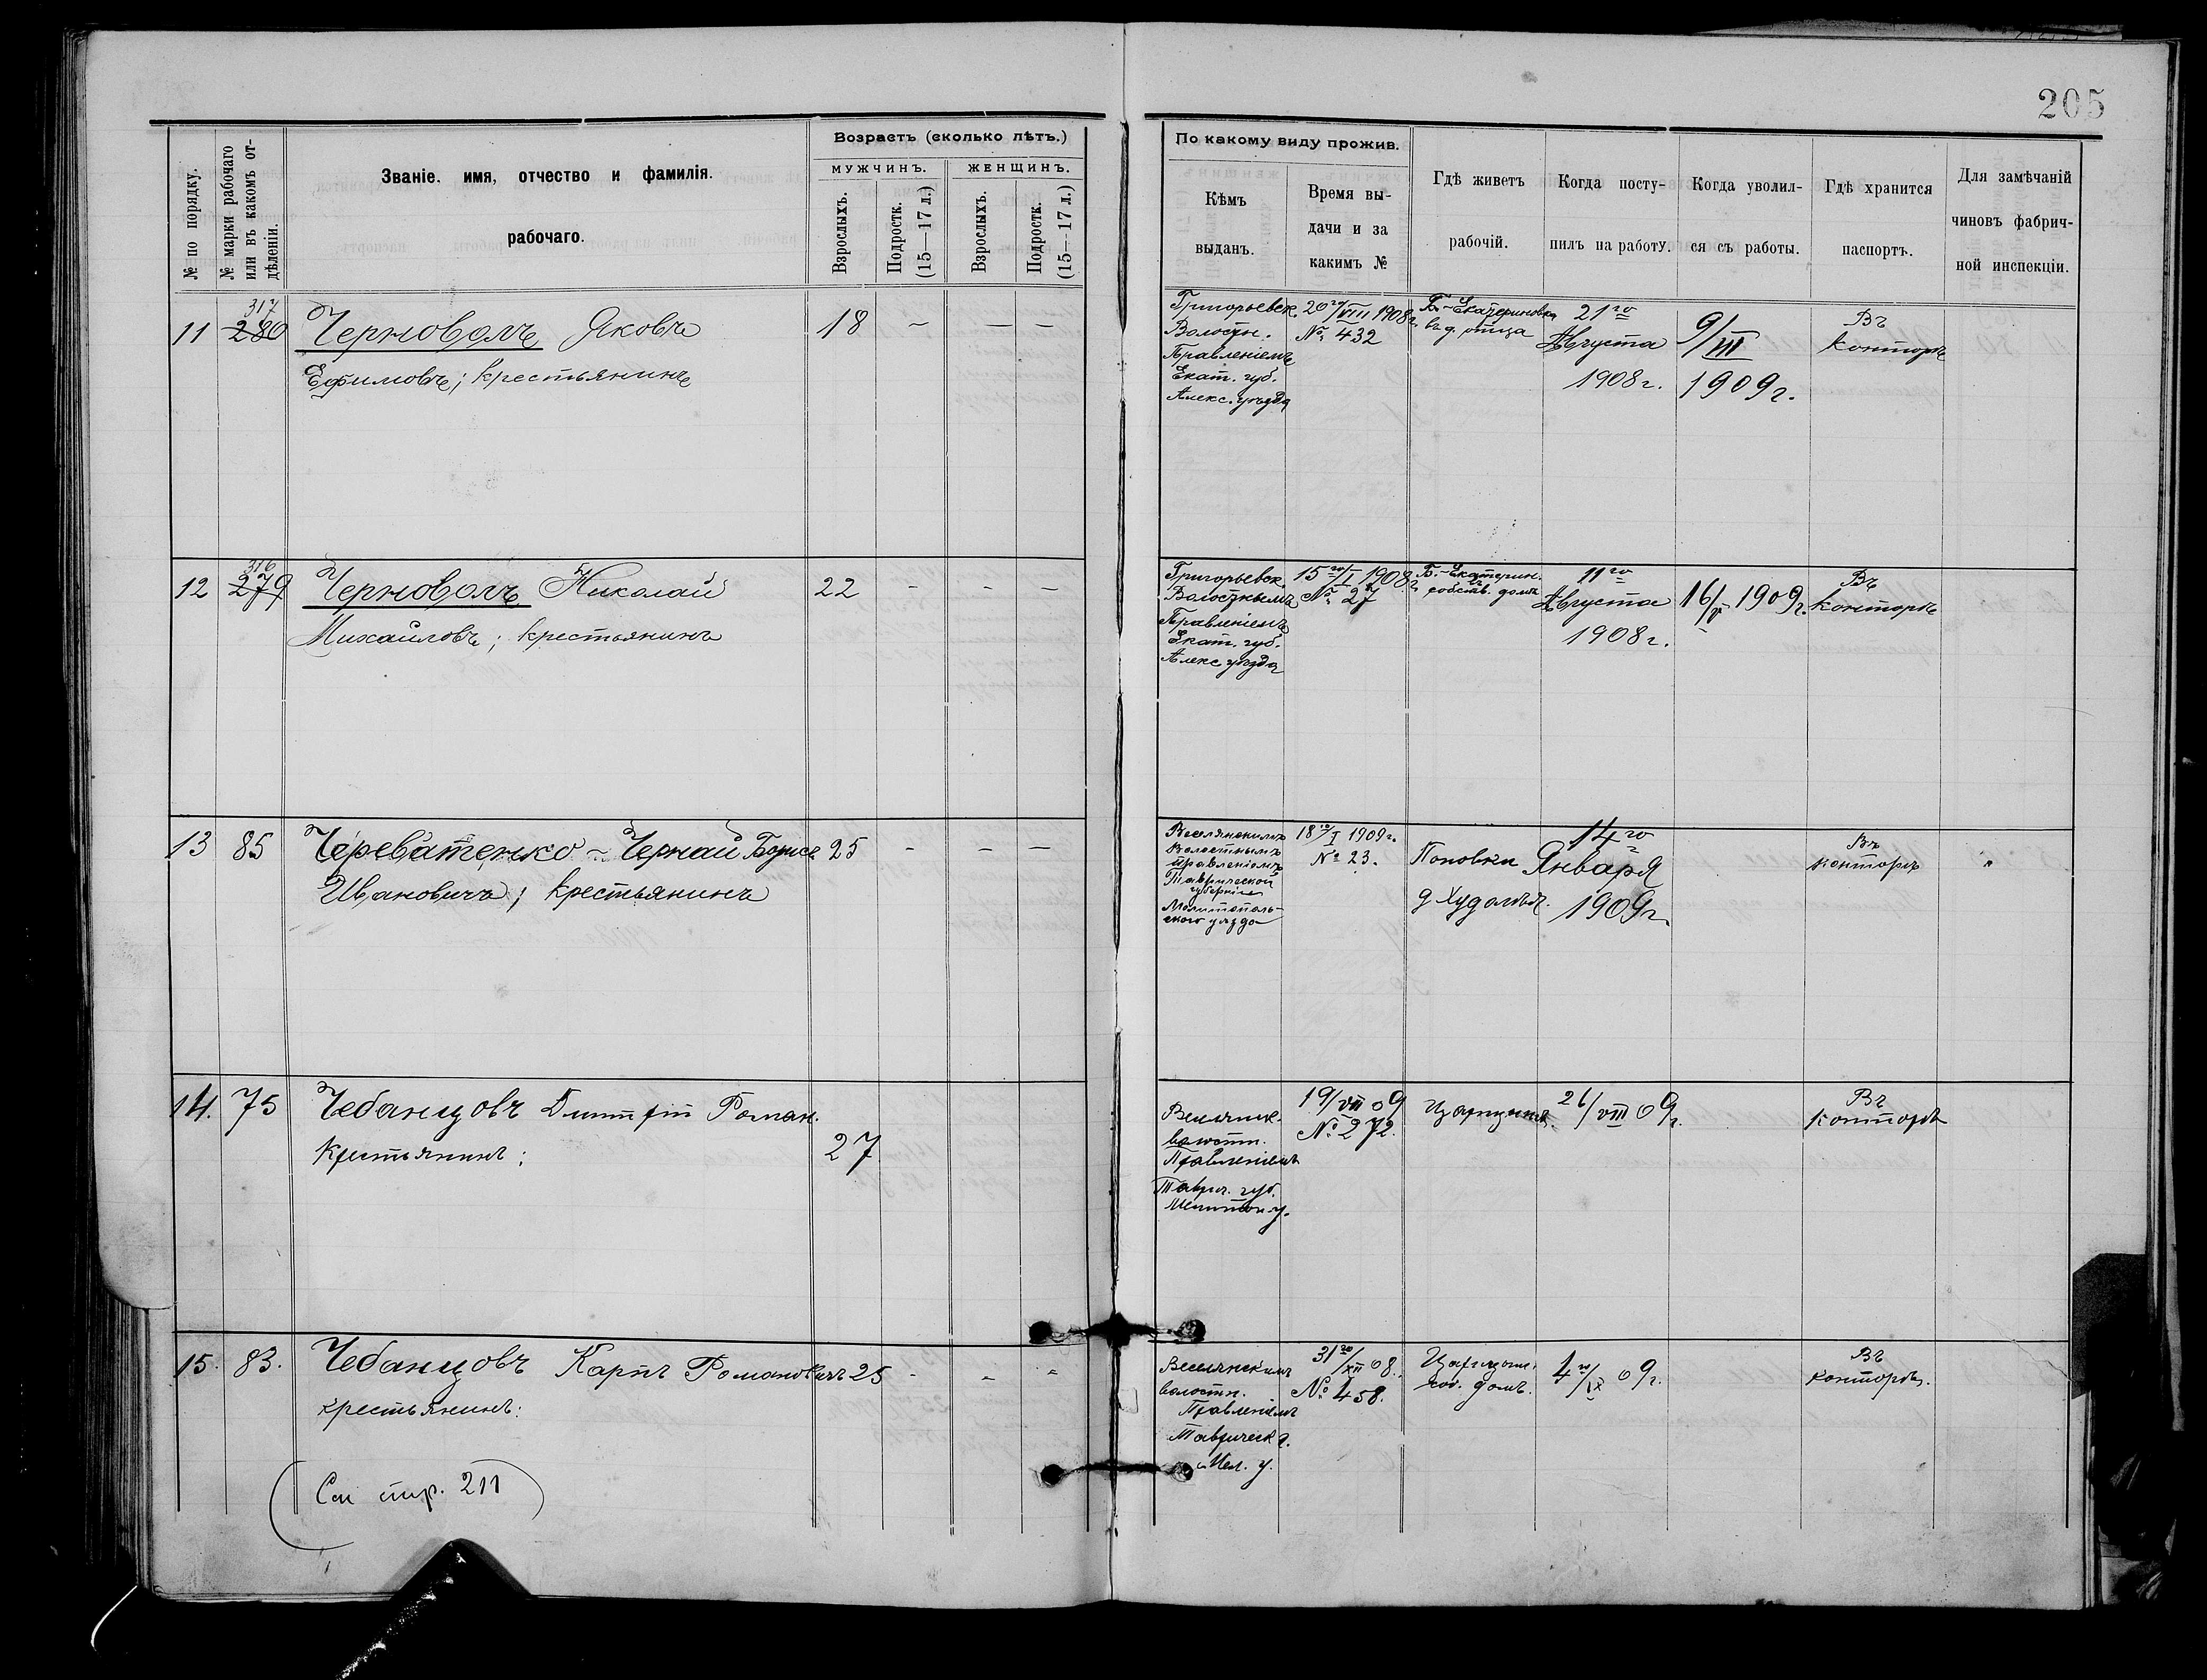 205
№ по порядку.
№ марки рабочаго или въ какомъ отдѣленіи.
Званіе. имя, отчество и фамилія.
рабочаго.
Возрастъ (сколько лѣтъ.)
МУЖЧИНЪ.
ЖЕНЩИНЪ.
Взрослыхъ.
Подростк. (15—17 л.)
Взрослыхъ.
Подростк. (15—17 л.)
По какому виду прожив.
Кѣмъ
выданъ.
Время вы-
дачи и за
какимъ №
Гдѣ живетъ
рабочій.
Когда посту-
пилъ на работу.
Когда уволил-
ся съ работы.
Гдѣ хранится
паспортъ.
Для замѣчаній
чиновъ фабрич-
ной инспекціи.
317
11 280 Черноволъ Яковъ 18 – — —
Ефимовъ; крестьянинъ
Григорьевск.
Волостн.
Правленіемъ
Екат. губ.
Алекс. уѣзда
20го/VIII 1908г.
№ 432
Б.-Екатериновка
въ д. отца
21го
Августа
1908 г.
9/III
1909 г.
Въ
конторѣ
316
12 279 Черноволъ Николай 22 – – –
Михайловъ; крестьянинъ
Григорьевск.
Волостнымъ
Правленіемъ
Екат. губ.
Алекс уѣзда
15го/I 1908г
№ 27
Б.-Екатерин.
собств. домъ
11го
Августа
1908 г.
16/V 1909г.
Въ
конторѣ
13 85 Череватенко - Чернай Борисъ 25 – – —
Ивановичъ; крестьянинъ
Веселянскимъ
Волостнымъ
правленіемъ
Таврической
губерніи
Мелитополь-
скаго уѣзда
18го/I 1909г.
№ 23.
Поповки
14го
Января
1909г.
Въ
конторѣ
14. 75 Чебанцовъ Дмитрій Роман.
крестьянинъ; 27
Веселянск.
волостн.
Правленіемъ
Таврич. губ.
Мелитоп. у.
19/VII 09
№ 272.
26/VIII 09г.
Въ
конторѣ
15. 83. Чебанцовъ Карпъ Романовичъ 25 - - -
крестьянинъ:
Веселянскимъ
волостн.
Правленіемъ
Таврическ г.
Мел. у.
31го/XII 08.
№ 458.
соб. домъ.
4го/IX 09г.
Въ
конторѣ.
(См стр. 211)